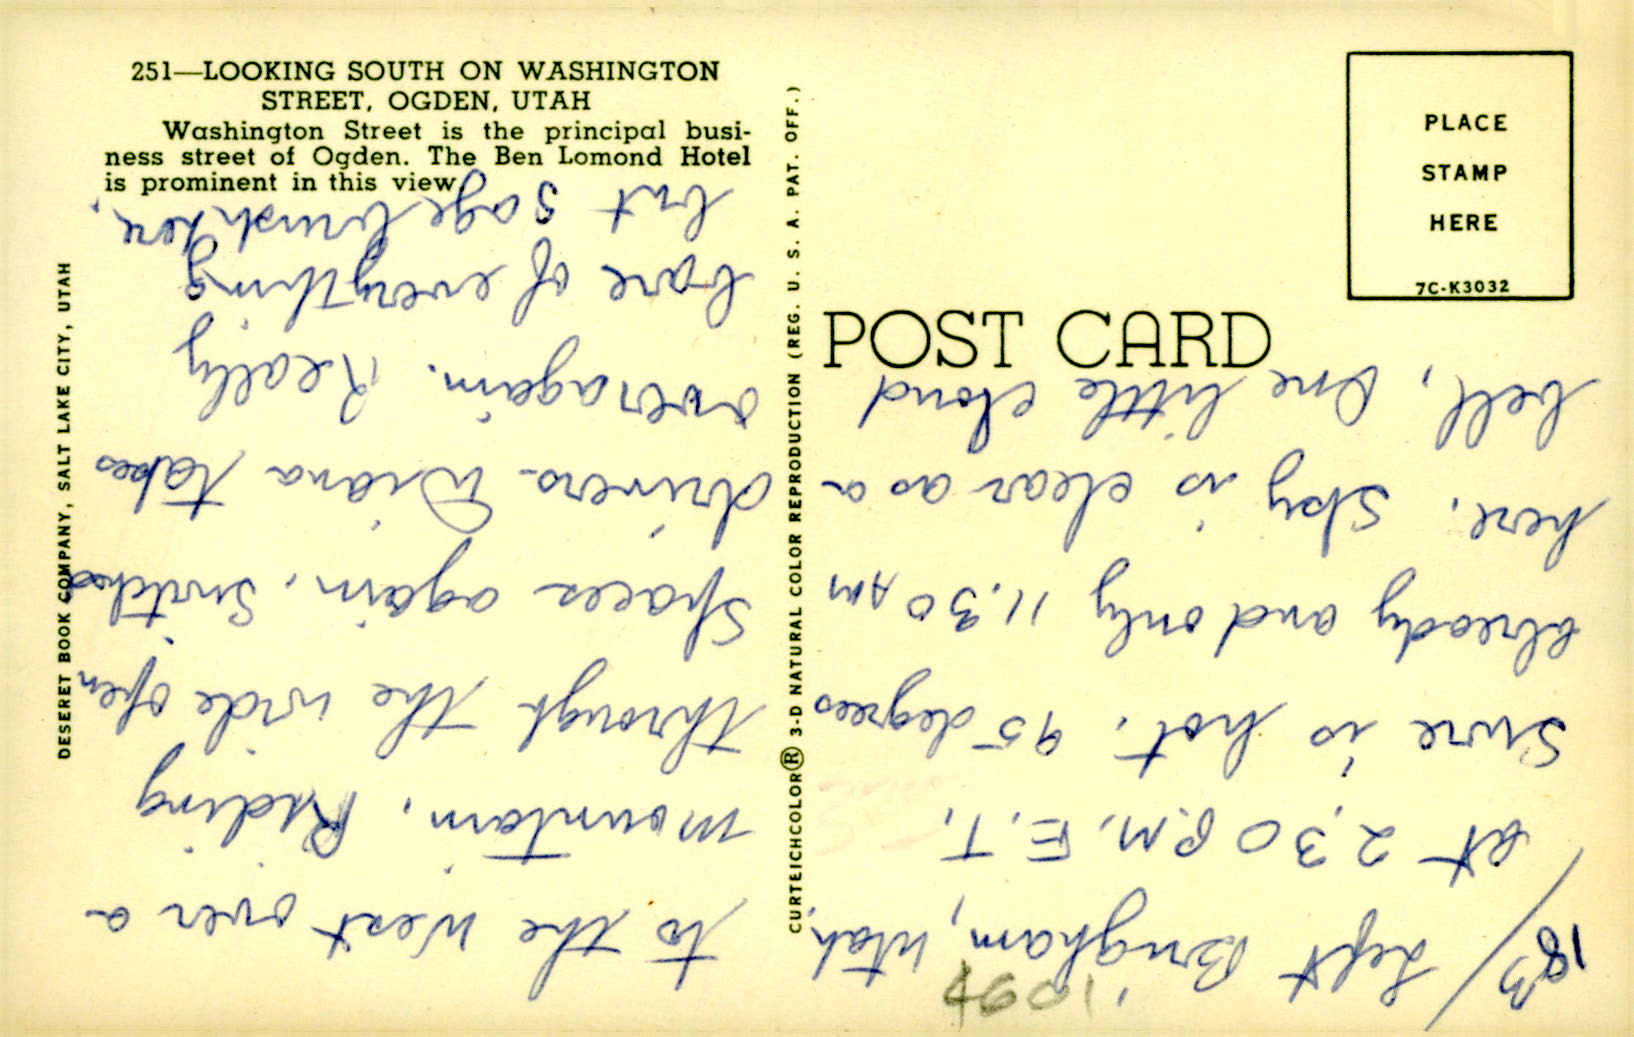 251—LOOKING SOUTH ON WASHINGTON
STREET, OGDEN, UTAH
Washington Street is the principal busi-
ness street of Ogden. The Ben Lomond Hotel
is prominent in this view.
DESERET BOOK COMPANY, SALT LAKE CITY, UTAH
CURTEICHCOLOR® 3-D NATURAL COLOR REPRODUCTION (REG. U. S. A. PAT. OFF.)
POST CARD
PLACE
STAMP
HERE
7C-K3032
18
Left Brigham, Utah,
at 2.30 P.M. E.T.
Sure is hot. 95 degrees
already and only 11.30 AM
here. Sky is clear as a
bell, One little cloud
to the West over a
mountain. Riding
through the wide open
spaces again. Switched
drivers - Diana takes
over again. Really
bare of everything
but sage brush here.